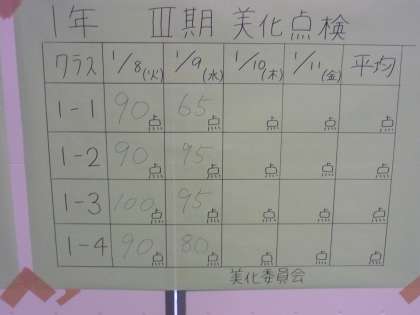 1年 III期 美化点検
クラス 1/8(火) 1/9(水) 1/10(木) 1/11(金) 平均
1-1 90点 65点 点 点 点
1-2 90点 95点 点 点 点
1-3 100点 95点 点 点 点
1-4 90点 80点 点 点 点
美化委員会